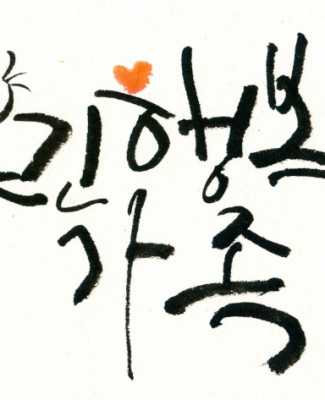 린행복
가족